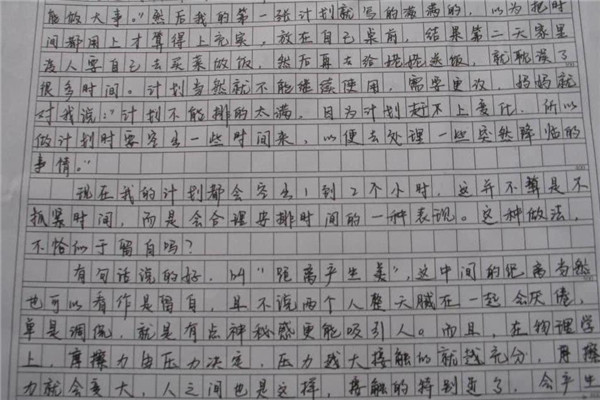 能做大事。"然后我的第一张计划就写的满满的，以为把时
间都用上才算得上充实，放在自己桌前，结果第二天家里
没人要自己去买菜做饭，然后再去给姥姥送饭，就耽误了
很多时间。计划当然就不能继续使用，需要更改，妈妈就
对我说："计划不能排的太满，因为计划赶不上变化，所以
做计划时要空出一些时间来，以便去处理一些突然降临的
事情。"
现在我的计划都会空出1到2个小时，这并不算是不
抓紧时间，而是会合理安排时间的一种表现。这种做法，
不恰似于留白吗？
有句话说的好，叫"距离产生美"，这中间的距离当然
也可以看作是留白，且不说两个人整天腻在一起会厌倦，
单是调侃，就是有点神秘感更能吸引人。而且，在物理学
上，摩擦力由压力决定，压力越大接触的就越充分，摩擦
力就会变大，人之间也是这样，接触的特别近了，会产生